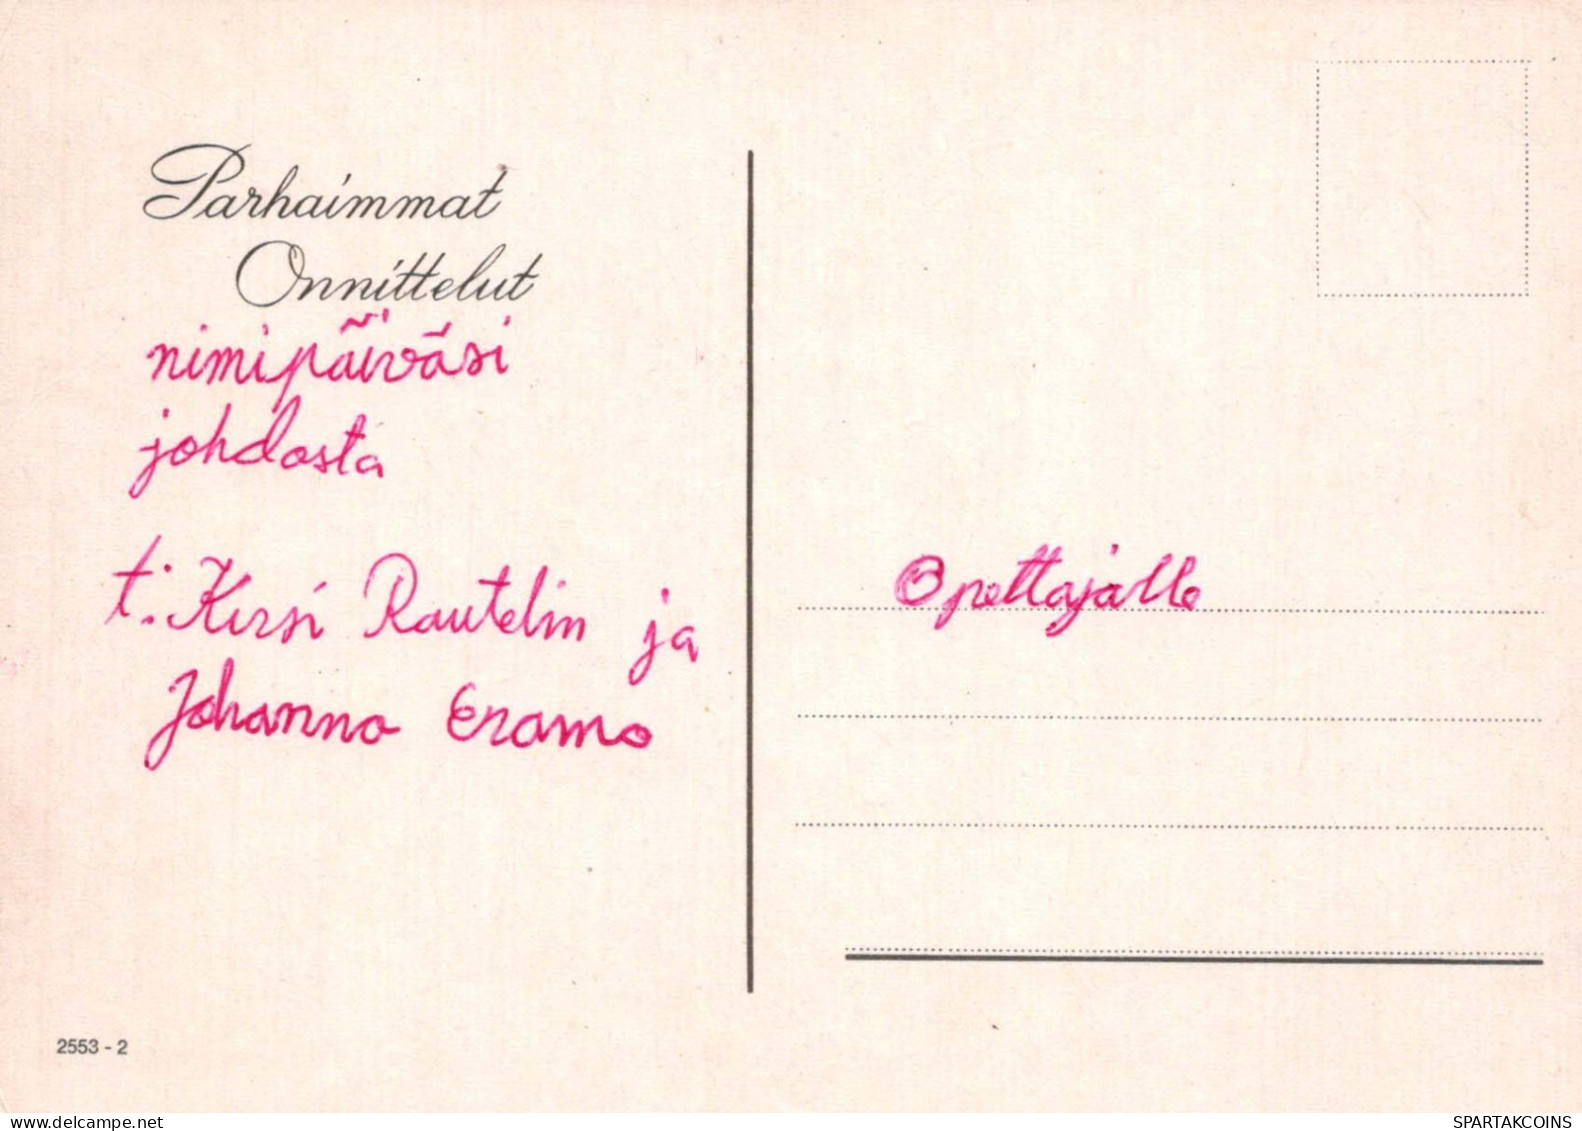 Parhaimmat
Onnittelut
nimipäiväsi
johdosta
t: Kirsi Rautelin ja
Johanna Eramo
Opettajalle
2553 - 2
www.delcampe.net
SPARTAKCOINS